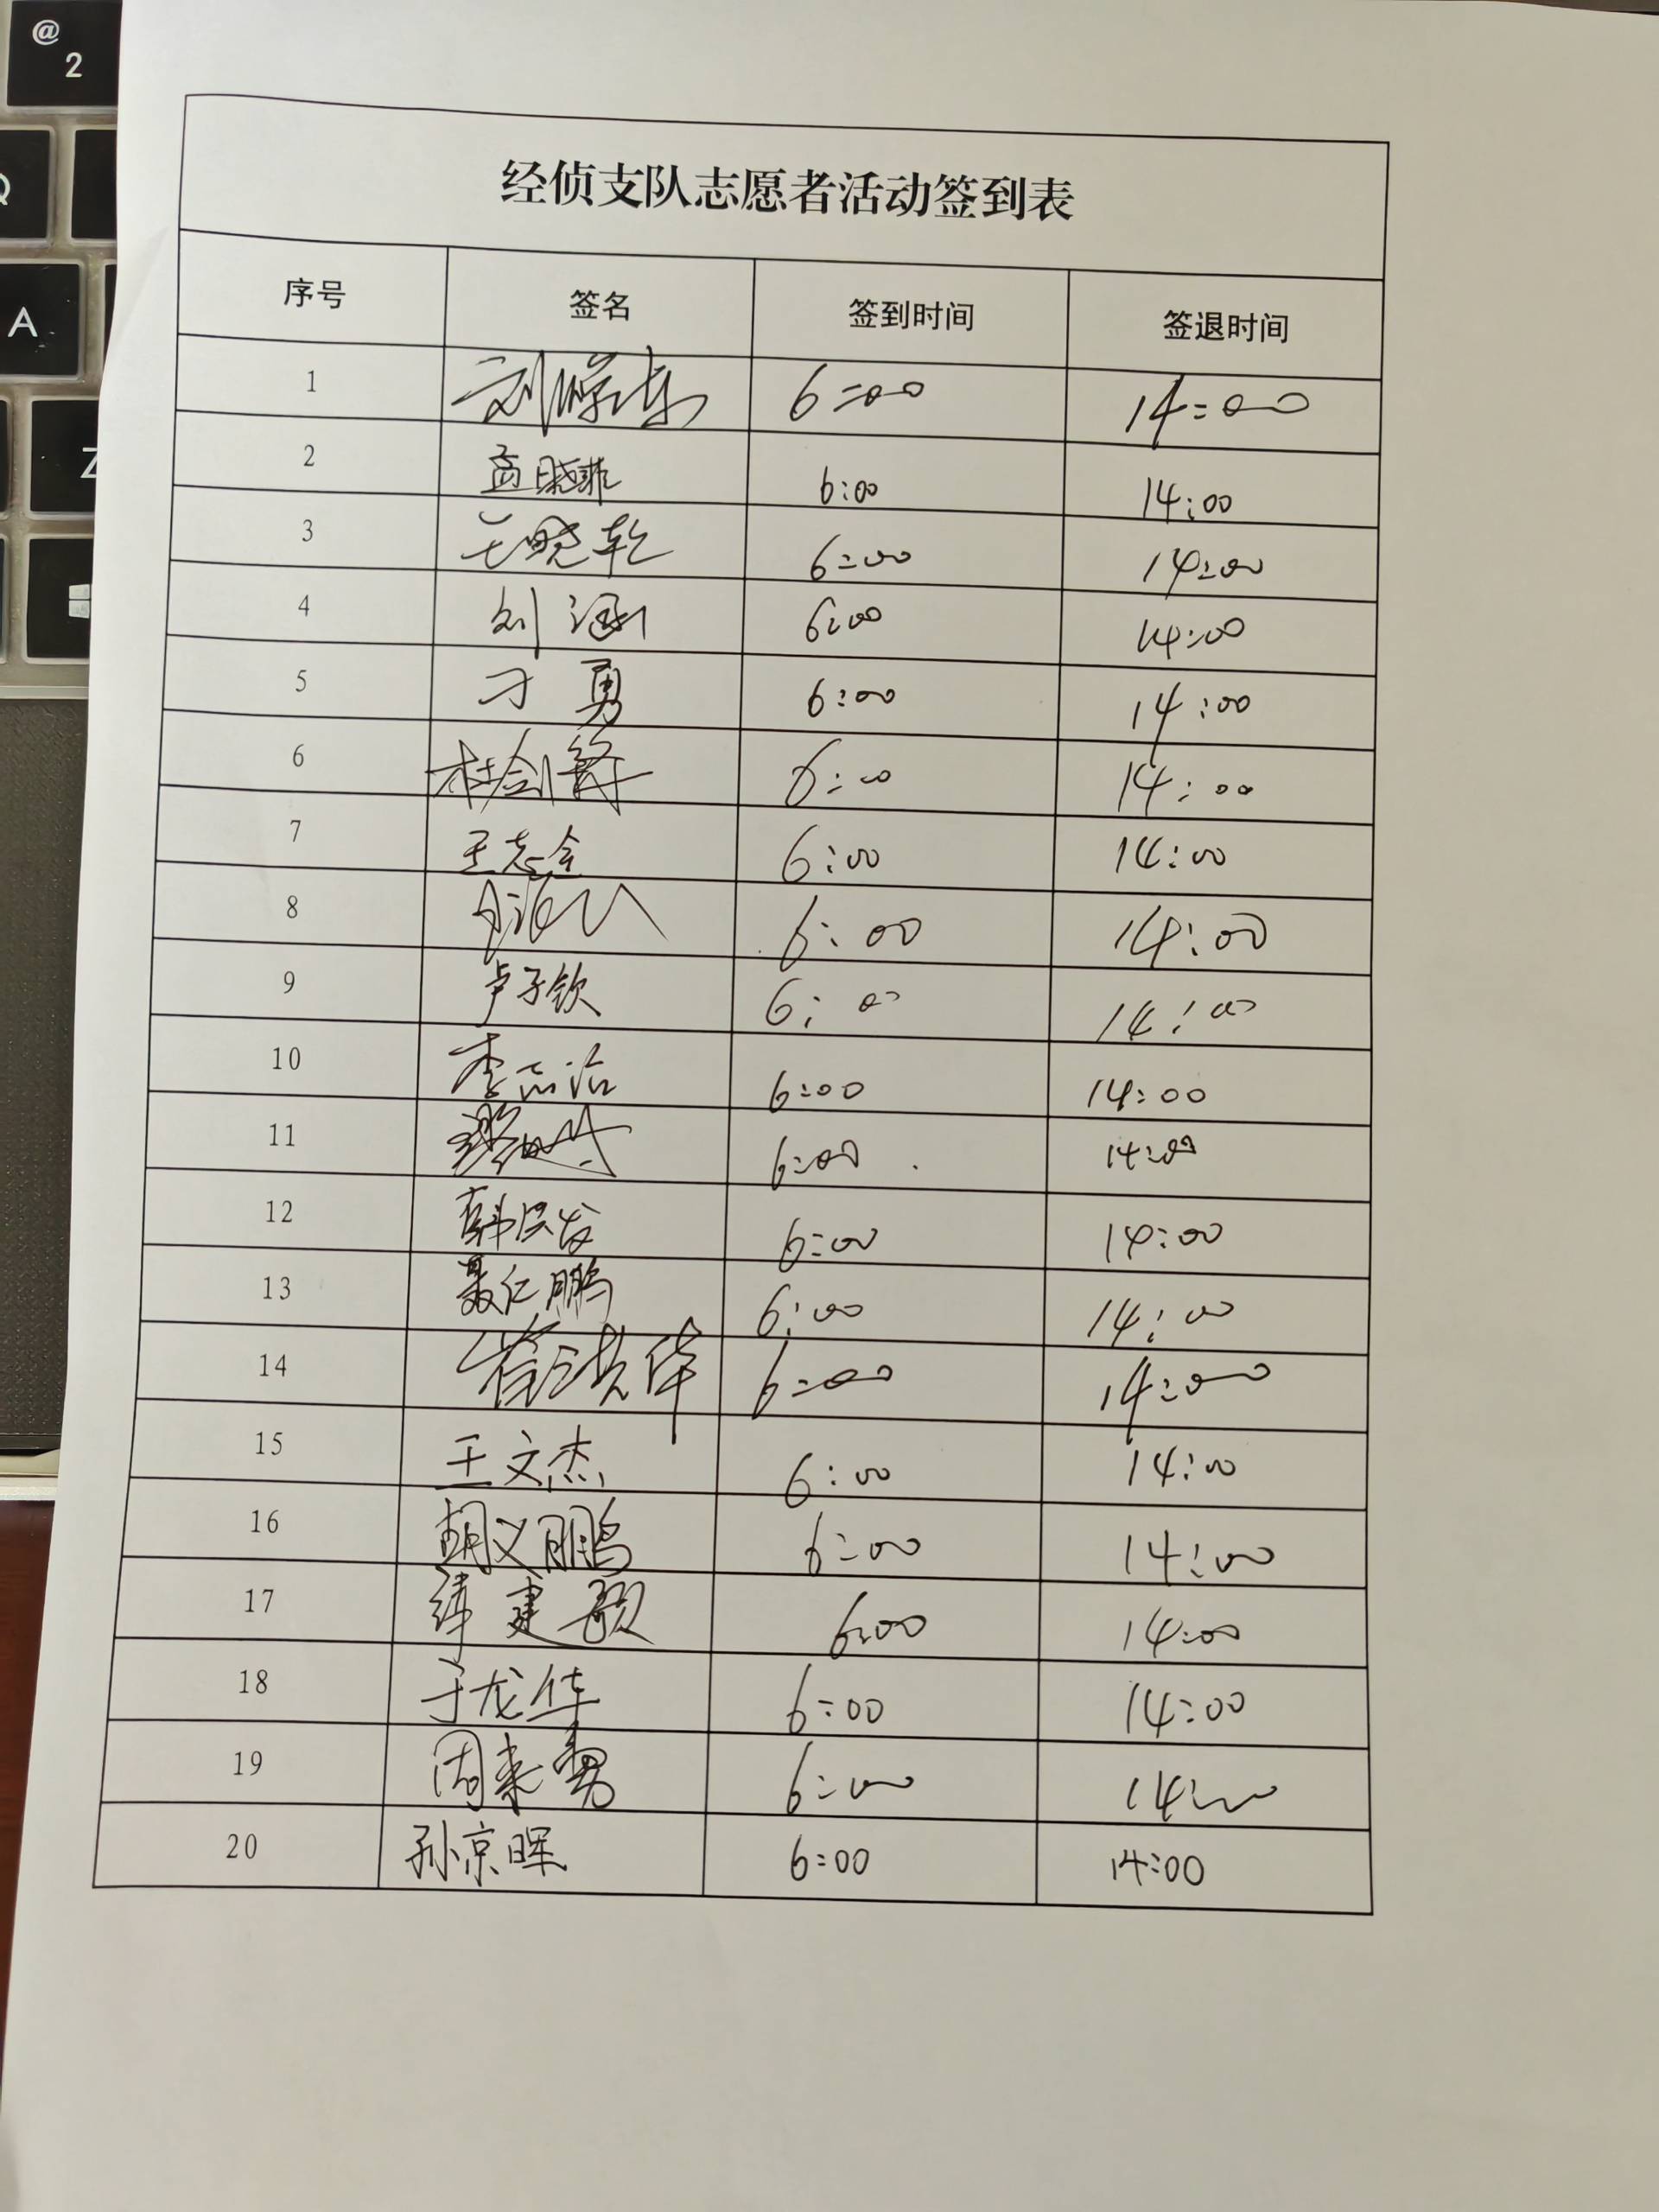 @
2
Q
A
Z
经侦支队志愿者活动签到表
序号 签名 签到时间 签退时间
1 6:00 14:00
2 孟晓菲 6:00 14:00
3 王晓乾 6:00 14:00
4 刘涵 6:00 14:00
5 刁勇 6:00 14:00
6 杜剑锋 6:00 14:00
7 王志全 6:00 14:00
8 6:00 14:00
9 卢子钦 6:00 14:00
10 李志治 6:00 14:00
11 6:00 14:00
12 韩洪发 6:00 14:00
13 聂仁鹏 6:00 14:00
14 6:00 14:00
15 王文杰 6:00 14:00
16 胡义鹏 6:00 14:00
17 建 6:00 14:00
18 于龙华 6:00 14:00
19 周来勇 6:00 14:00
20 孙京晖 6:00 14:00